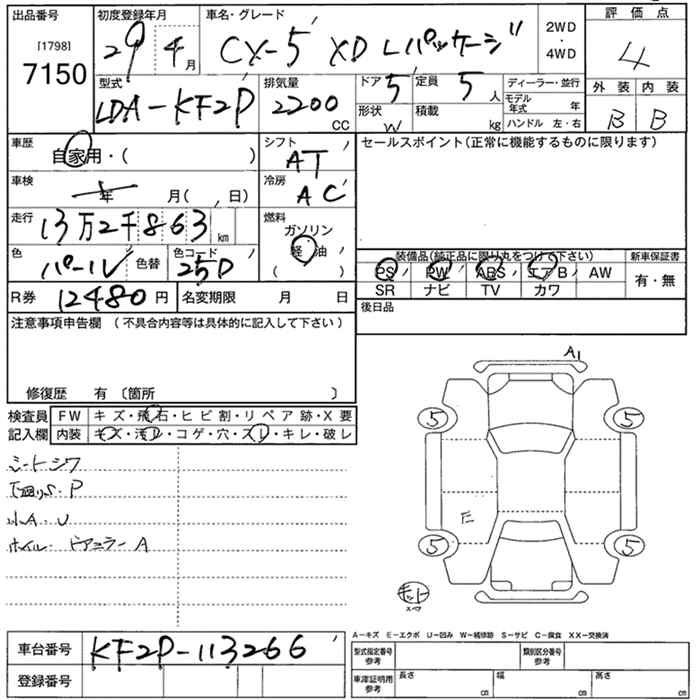 出品番号 初度登録年月 車名・グレード 2WD・4WD 評価点
[1798] 7150 29 4月 CX-5 XD Lパッケージ 4
型式 排気量 ドア 5 定員 5人 ディーラー・並行 外装 内装
LDA-KF2P 2200 CC 形状 W 積載 kg モデル年式 年 ハンドル 左・右 B B
車歴 自家用・( ) シフト AT セールスポイント(正常に機能するものに限ります)
車検 年 月( , 日) 冷房 AC
走行 13万2千863km 燃料 ガソリン
軽油
( )
色 パール 色替 色コード 25D 装備品(純正品に限り丸をつけて下さい) 新車保証書
PS PW ABS エアB AW 有・無
SR ナビ TV カワ
R券 12480円 名変期限 月 日 後日品
注意事項申告欄 (不具合内容等は具体的に記入して下さい)
修復歴 有 〔箇所 〕
検査員 FW キズ・飛石・ヒビ割・リペア跡・X要
記入欄 内装 キズ・汚レ・コゲ・穴・スレ・キレ・破レ
シートシワ
下廻りS.P
小A.U
ホイル・ドアミラーA
A1
5 5
E
5 5
キット
スペア
A-キズ E-エクボ U-凹み W-補修跡 S-サビ C-腐食 XX-交換済
車台番号 KF2P-113266 型式指定番号 参考 類別区分番号 参考
登録番号 車庫証明用 参考 長さ cm 幅 cm 高さ cm